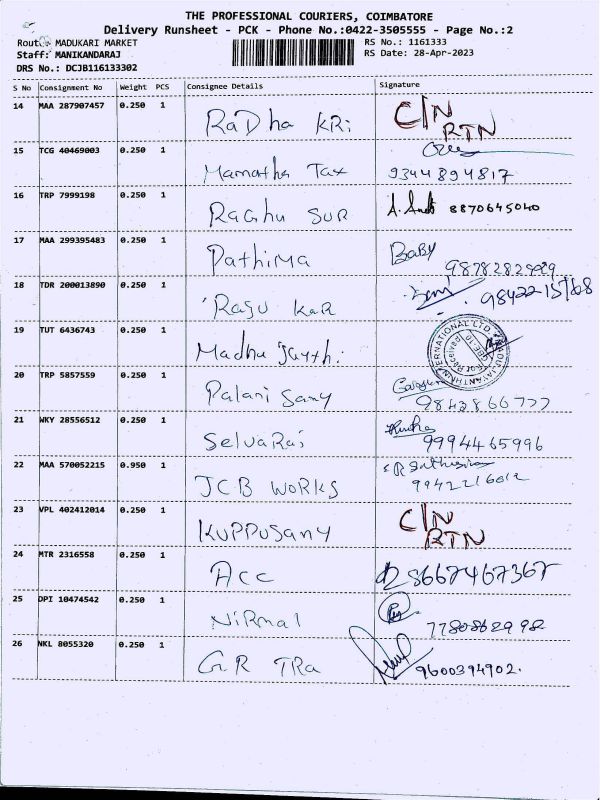 THE PROFESSIONAL COURIERS, COIMBATORE
Delivery Runsheet - PCK - Phone No.:0422-3505555 - Page No.:2
Route: MADUKARI MARKET
RS No.: 1161333
Staff: MANIKANDARAJ
RS Date: 28-Apr-2023
DRS No.: DCJB116133302
S No Consignment No Weight PCS Consignee Details Signature
14 MAA 287907457 0.250 1 RaDha KRi C/N RTN
15 TCG 40469003 0.250 1 Mamatha Tax 9344894817
16 TRP 7999198 0.250 1 RAGHU SUR 8870645040
17 MAA 299395483 0.250 1 Pathima BABY
18 TDR 200013890 0.250 1 Raju KaR
19 TUT 6436743 0.250 1 Madhu
20 TRP 5857559 0.250 1 Palani Samy 9843866777
21 WKY 28556512 0.250 1 SelvaRaj 9994465996
22 MAA 570052215 0.950 1 JCB WORKS 9942216012
23 VPL 402412014 0.250 1 KUPPUSAMY C/N RTN
24 MTR 2316558 0.250 1 ACC 8667467367
25 DPI 10474542 0.250 1 NiRmal 7780862998
26 NKL 8055320 0.250 1 G.R TRa 9600394902.